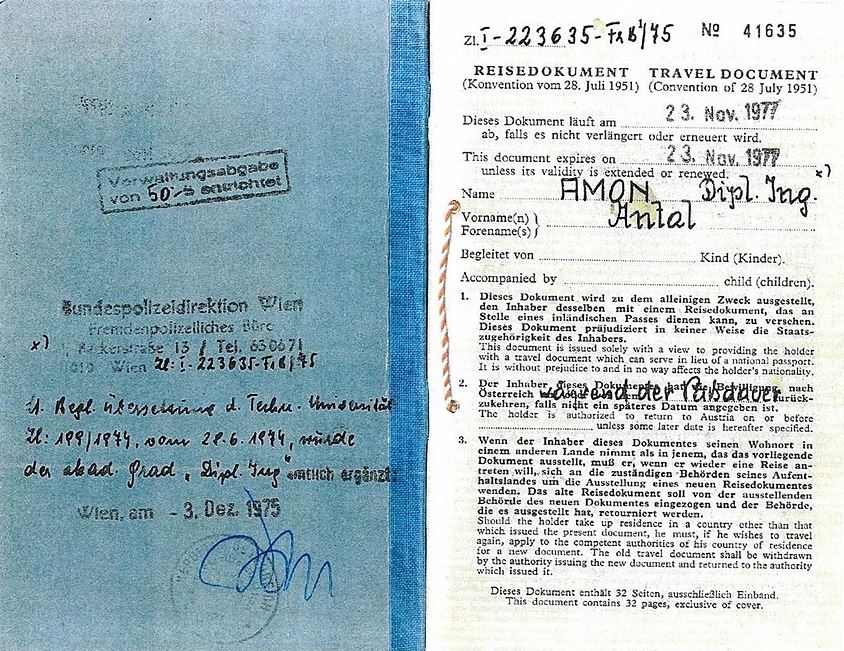 Verwaltungsabgabe
von 50-S entrichtet
Bundespolizeidirektion Wien
Fremdenpolizeiliches Büro
x) 13 / Tel. 63 06 71
Wien Zl: I-223635-FrB/75
Lt. Begl. Übersetzung d. Techn. Universität
Zl: 199/1974, vom 28.6.1974, wurde
der akad. Grad „Dipl. Ing" amtlich ergänzt.
Wien, am - 3. Dez. 1975
Zl. I-223635-FrB/75 No 41635
REISEDOKUMENT TRAVEL DOCUMENT
(Konvention vom 28. Juli 1951) (Convention of 28 July 1951)
Dieses Dokument läuft am 23. Nov. 1977
ab, falls es nicht verlängert oder erneuert wird.
This document expires on 23. Nov. 1977
unless its validity is extended or renewed.
Name AMON Dipl. Ing. x)
Vorname(n)
Forename(s) Antal
Begleitet von Kind (Kinder).
Accompanied by child (children).
1. Dieses Dokument wird zu dem alleinigen Zweck ausgestellt,
den Inhaber desselben mit einem Reisedokument, das an
Stelle eines inländischen Passes dienen kann, zu versehen.
Dieses Dokument präjudiziert in keiner Weise die Staats-
zugehörigkeit des Inhabers.
This document is issued solely with a view to providing the holder
with a travel document which can serve in lieu of a national passport.
It is without prejudice to and in no way affects the holder's nationality.
2. Der Inhaber dieses Dokumentes hat die Bewilligung, nach
Österreich während der Paßdauer zurück-
zukehren, falls nicht ein späteres Datum angegeben ist.
The holder is authorized to return to Austria on or before
unless some later date is hereafter specified.
3. Wenn der Inhaber dieses Dokumentes seinen Wohnort in
einem anderen Lande nimmt als in jenem, das das vorliegende
Dokument ausstellt, muß er, wenn er wieder eine Reise an-
treten will, sich an die zuständigen Behörden seines Aufent-
haltslandes um die Ausstellung eines neuen Reisedokumentes
wenden. Das alte Reisedokument soll von der ausstellenden
Behörde des neuen Dokumentes eingezogen und der Behörde,
die es ausgestellt hat, retourniert werden.
Should the holder take up residence in a country other than that
which issued the present document, he must, if he wishes to travel
again, apply to the competent authorities of his country of residence
for a new document. The old travel document shall be withdrawn
by the authority issuing the new document and returned to the authority
which issued it.
Dieses Dokument enthält 32 Seiten, ausschließlich Einband.
This document contains 32 pages, exclusive of cover.